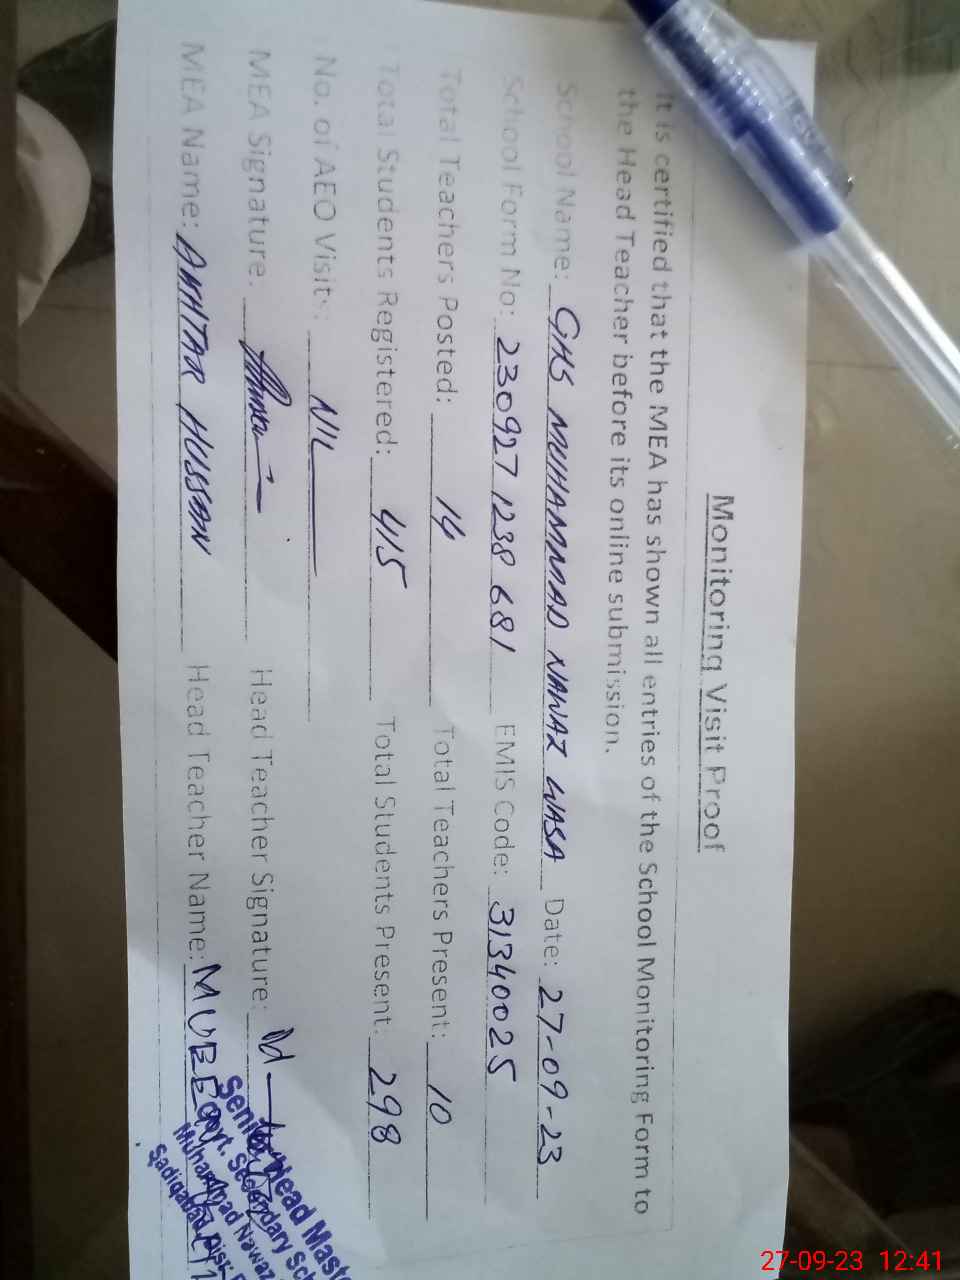 Monitoring Visit Proof
It is certified that the MEA has shown all entries of the School Monitoring Form to
the Head Teacher before its online submission.
School Name: GHS MUHAMMAD NAWAZ WASA Date: 27-09-23
School Form No: 230927 1238 681 EMIS Code: 31340025
Total Teachers Posted: 14 Total Teachers Present: 10
Total Students Registered: 415 Total Students Present: 298
No. of AEO Visits: NIL
MEA Signature: Head Teacher Signature:
MEA Name: Head Teacher Name:
Senior Head Mast
Govt. Secondary Sch
Muhammad Nawaz
Sadiqabad Dist
27-09-23 12:41